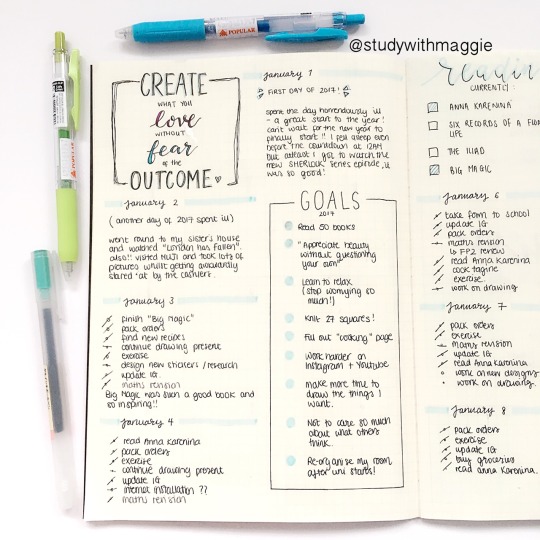 @studywithmaggie
POPULAR
POPULAR
CREATE
WHAT YOU
love
WITHOUT
fear
OF THE
OUTCOME
January 2
(another day of 2017 spent ill)
went round to my sister's house
and watched "London has Fallen".
also!! visited MUJI and took lots of
pictures whilst getting awkwardly
stared at by the cashiers
January 3
finish "Big Magic"
pack orders
find new recipes
continue drawing present
exercise
design new stickers / research
update IG
maths revision
Big Magic was such a good book and
so inspiring!!
January 4
read Anna Karenina
pack orders
exercise
continue drawing present
update IG
internet installation ??
maths revision
January 1
FIRST DAY OF 2017!
spent the day horrendously ill
- a great start to the year!
can't wait for the new year to
finally start!! I fell asleep even
before the countdown at 12AM
but at least I got to watch the
new SHERLOCK series episode, it
was so good!
GOALS
2017
Read 50 books
"Appreciate beauty
without questioning
your own"
Learn to relax
(stop worrying so
much!)
Knit 27 squares!
Fill out "cooking" page
work harder on
Instagram + Youtube
make more time to
draw the things I
want.
Not to care so much
about what others
think.
Re-organise my room
after uni starts!
readin
CURRENTLY:
ANNA KARENINA
SIX RECORDS OF A FLOA
LIFE
THE ILIAD
BIG MAGIC
January 6
take form to school
update IG
pack orders
maths revision
FP2 review
read Anna Karenina
cook tagine
exercise
work on drawing
January 7
pack orders
exercise
maths revision
update IG
read Anna Karenina
work on new designs
work on drawing.
January 8
pack orders
exercise
update IG
buy groceries
read Anna Karenina.